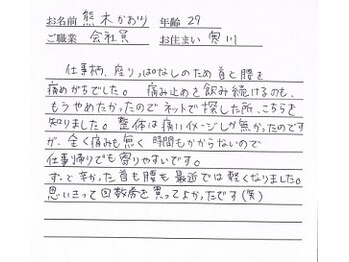 お名前 熊木かおり 年齢 27
ご職業 会社員 お住まい 寒川
仕事柄、座りっぱなしのため首と腰を
痛めがちでした。 痛み止めを飲み続けるのも、
もうやめたかったのでネットで探した所、こちらを
知りました。整体は痛いイメージしか無かったのです
が、全く痛みも無く時間もかからないので
仕事帰りでも寄りやすいです。
ずっと辛かった首も腰も最近では軽くなりました。
思いきって回数券を買ってよかったです(笑)